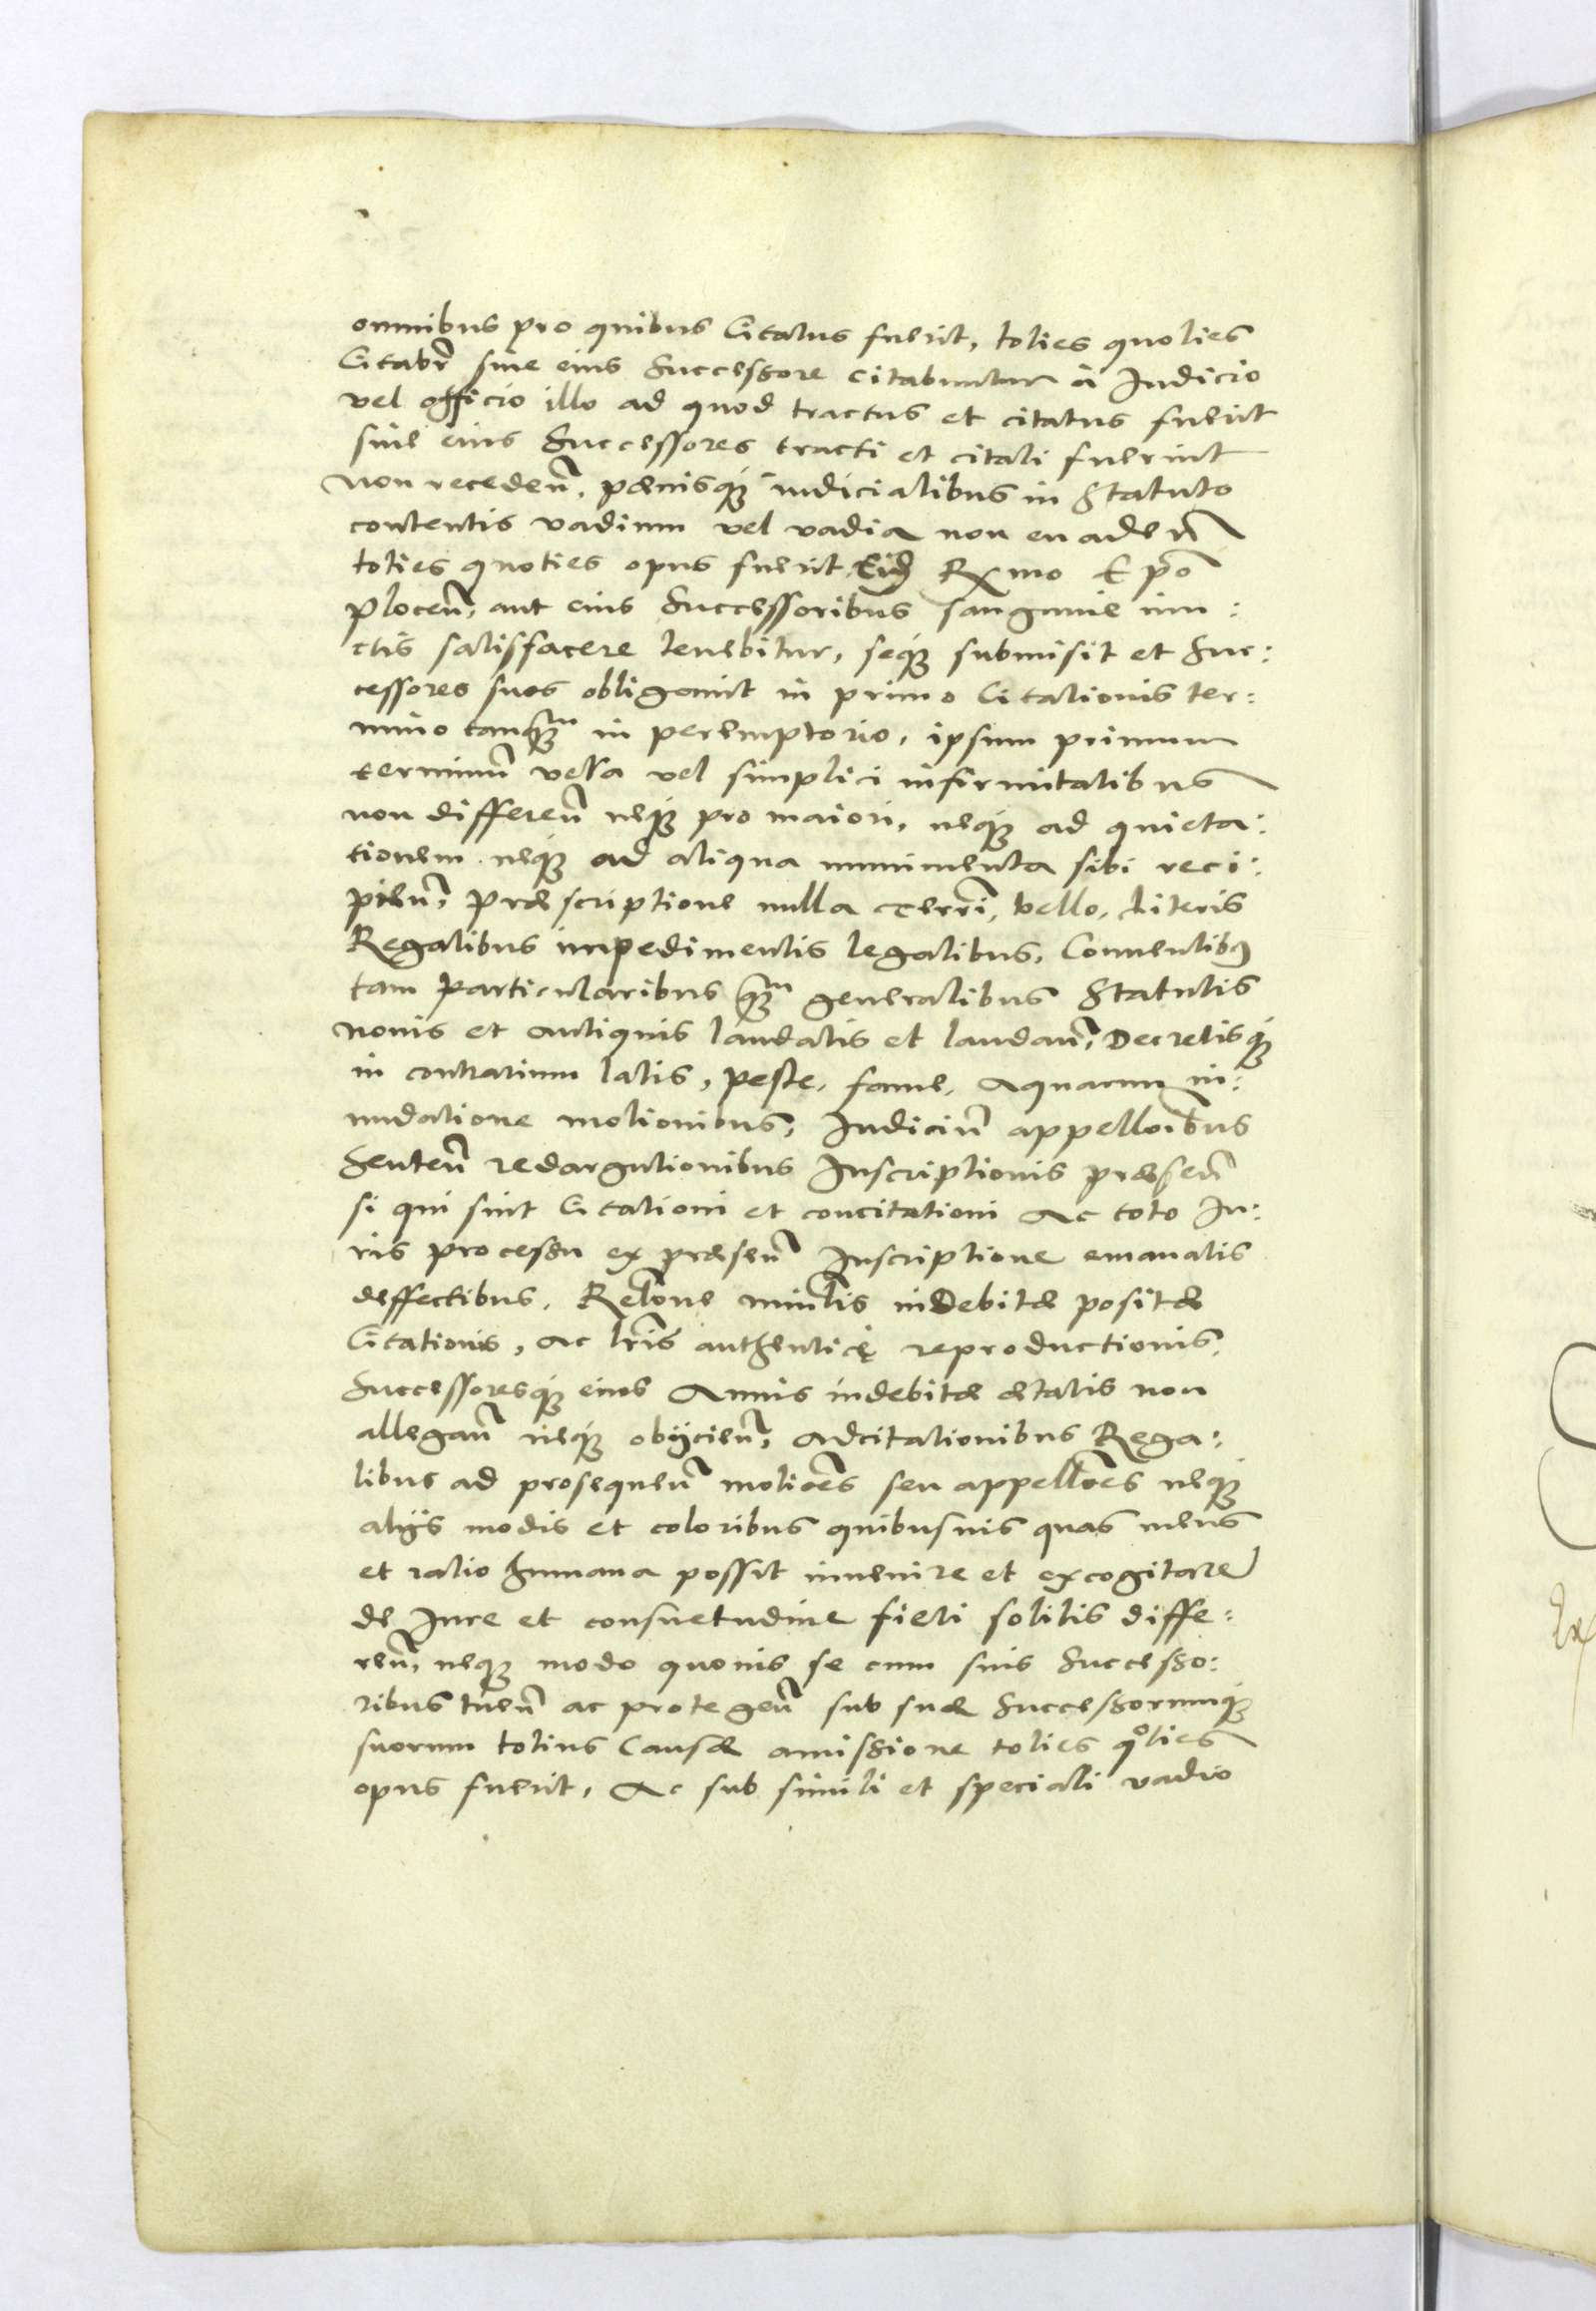 omnibus pro quibus Citatus fuerit, toties quoties
Citabr̃ siue eius Successore citabuntur à Iudicio
vel officio illo ad quod tractus et citatus fuerit
siue eius Successores tracti et citati fuerint
non recedeñ, pœnisq̃ iudicialibus in Statuto
contentis vadium vel vadia non euadeñ
toties quoties opus fuerit, Eid Rxmo Epõ
Ploceñ, aut eius Successoribus sanguine iun:
ctis satisfacere tenebitur, seq̃ submisit et Suc:
cessores suos obligauit in primo Citationis ter:
mino tanq̃m in peremptorio, ipsum primum
terminũ vera vel simplici infirmitatibus
non differeñ neq̃ pro maiori, neq̃ ad quieta:
tionem neq̃ ad aliqua munimenta sibi reci:
pieñ, Præscriptione nulla terrĩ, bello, Literis
Regalibus impedimentis legalibus, Conuentibꝰ
tam particularibus q̃m generalibus Statutis
nouis et antiquis laudatis et laudañ, Decretisq̃
in contrarium latis, peste, fame, Aquarum in:
undatione motionibus, Iudiciũ appellõibus
Senteñ redargutionibus Inscriptionis præseñ
si qui sint Citationi et concitationi Ac toto Iu:
ris processu ex præseñ Inscriptione emanatis
deffectibus, Relõne minr̃lis indebitæ positæ
Citationis, Ac lr̃is authenticę reproductionis,
Successoresq̃ eius Annis indebitæ ætatis non
allegañ neq̃ obijcieñ, Adcitationibus Rega:
libus ad prosequeñ motiões seu appellões neq̃
alijs modis et coloribus quibusuis quas mens
et ratio humana possit inuenire et excogitare
de Iure et consuetudine fieri solitis diffe:
reñ, neq̃ modo quouis se cum suis Successo:
ribus tueñ ac protegeñ sub suæ Successorumq̃
suorum totius Causæ amissione toties qo̊ties
opus fuerit, Ac sub simili et speciali vadio